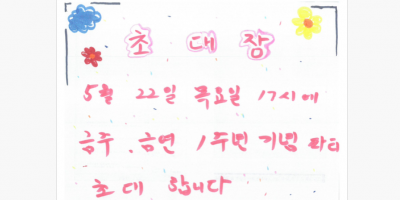 초대장
5월 22일 목요일 17시에
금주.금연 1주년 기념 파티
초대 합니다